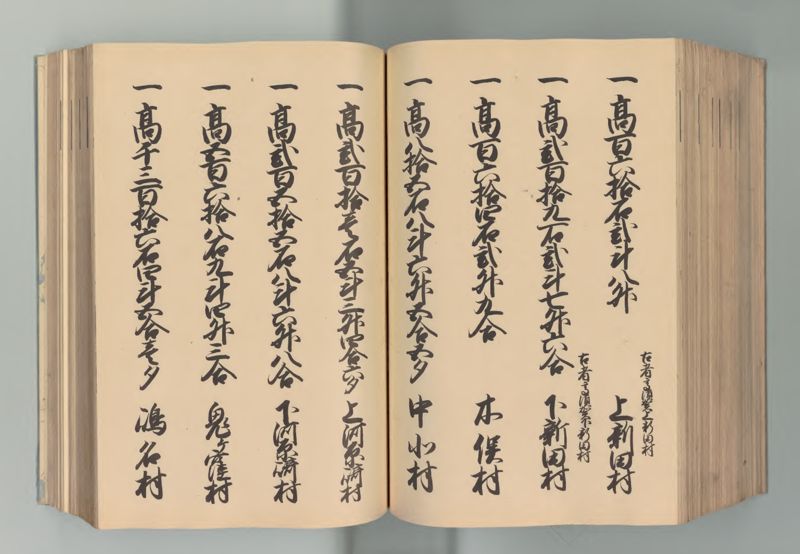 一高百六拾石弐斗八升 上新田村
一高弐百拾九石弐斗七升六合 下新田村
一高百六拾四石弐升九合 木俣村
一高八拾五石八斗六升五合五夕 中小村
一高弐百拾壱石五斗三升四合六夕 上河原崎村
一高弐百五拾五石八斗六升八合 下河原崎村
一高五百六拾八石九斗四升三合 鬼ヶ窪村
一高千三百拾六石四斗五合壱夕 嶋名村